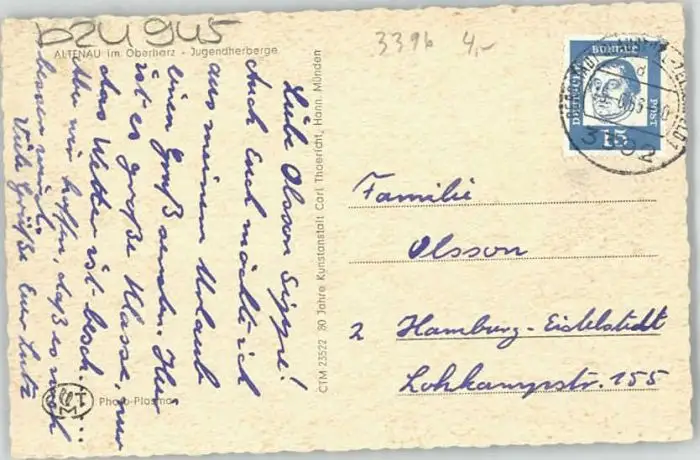 bzu945
ALTENAU im Oberharz - Jugendherberge
3396 4,-
Liebe Olsson Sippe!
Auch Euch möchte ich
aus meinem Urlaub
einen Gruß senden. Hier
ist es große Klasse, nur
das Wetter ist besch....
Aber wir hoffen, daß es noch
besser wird.
Viele Grüße Euer Lutz
Photo-Plasman
CTM 23522 80 Jahre Kunstanstalt Carl Thoericht, Hann. Münden
DEUTSCHE BUNDESPOST
15
3392
Familie
Olsson
2 Hamburg-Eidelstedt
Lohkampstr. 155